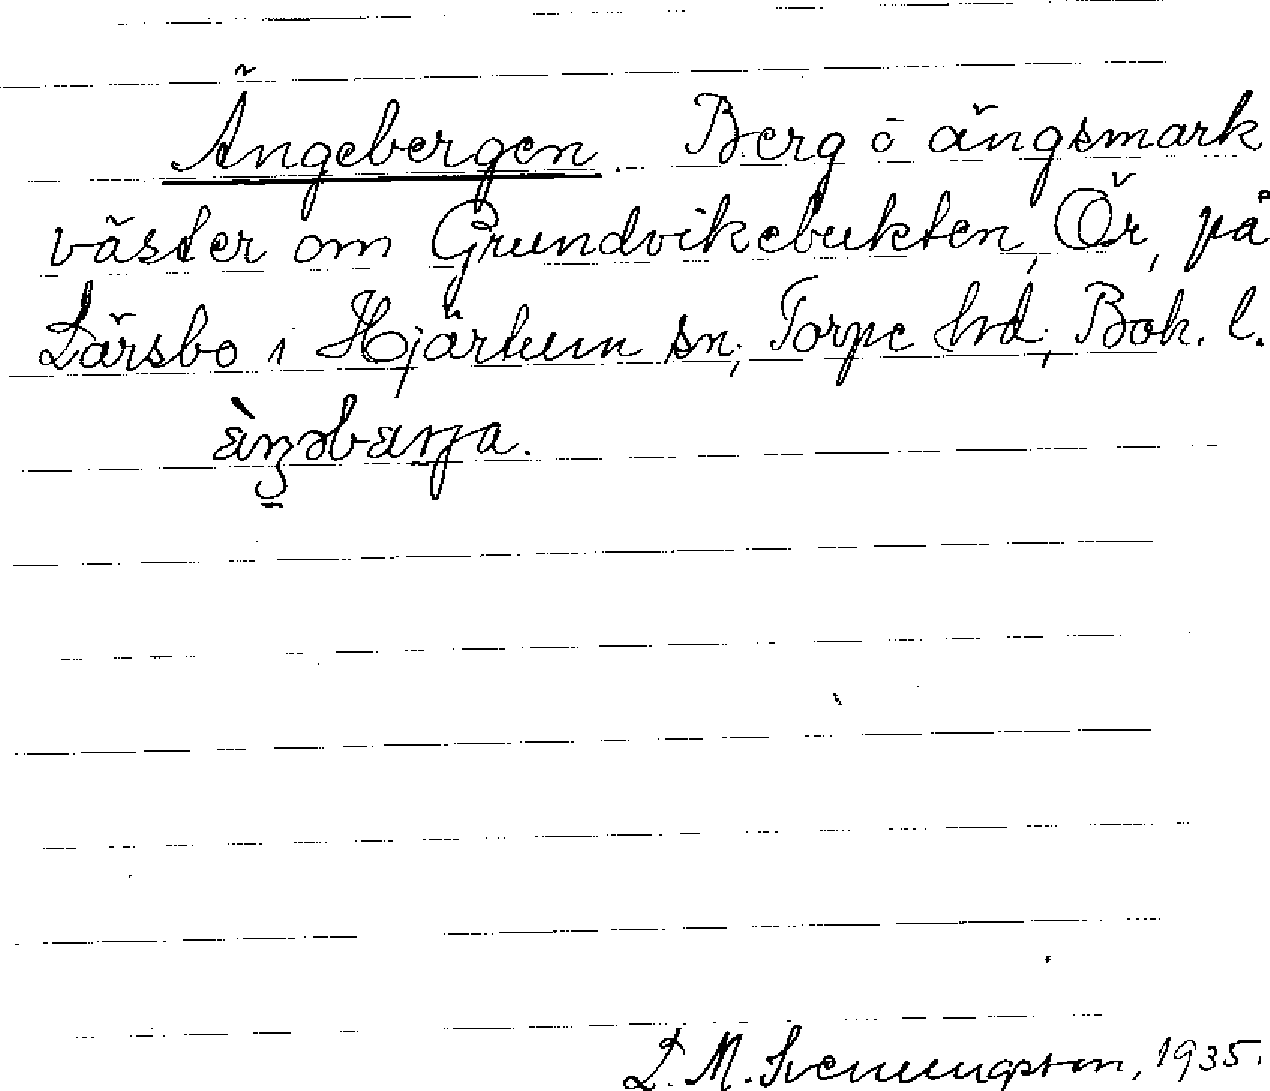 Ängebergen. Berg o ängsmark
väster om Grundvikebukten, Ör, på
Lärsbo i Hjärtum sn, Torpe hd, Boh. l.
L. M. Svenungsson, 1935.